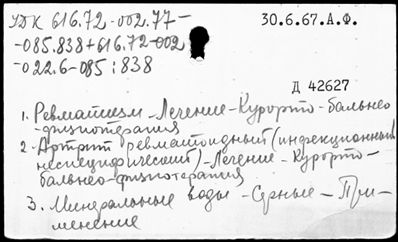 УДК 616.72-002.77-
30.6.67.А.Ф.
-085.838+616.72-002
-022.6-085:838
Д 42627
1. Ревматизм - Лечение - Курорто-бальнео
-физиотерапия
2. Артрит ревматоидный (инфекционный
неспецифический) - Лечение - Курорто-
бальнео-физиотерапия
3. Минеральные воды - Серные - При-
менение